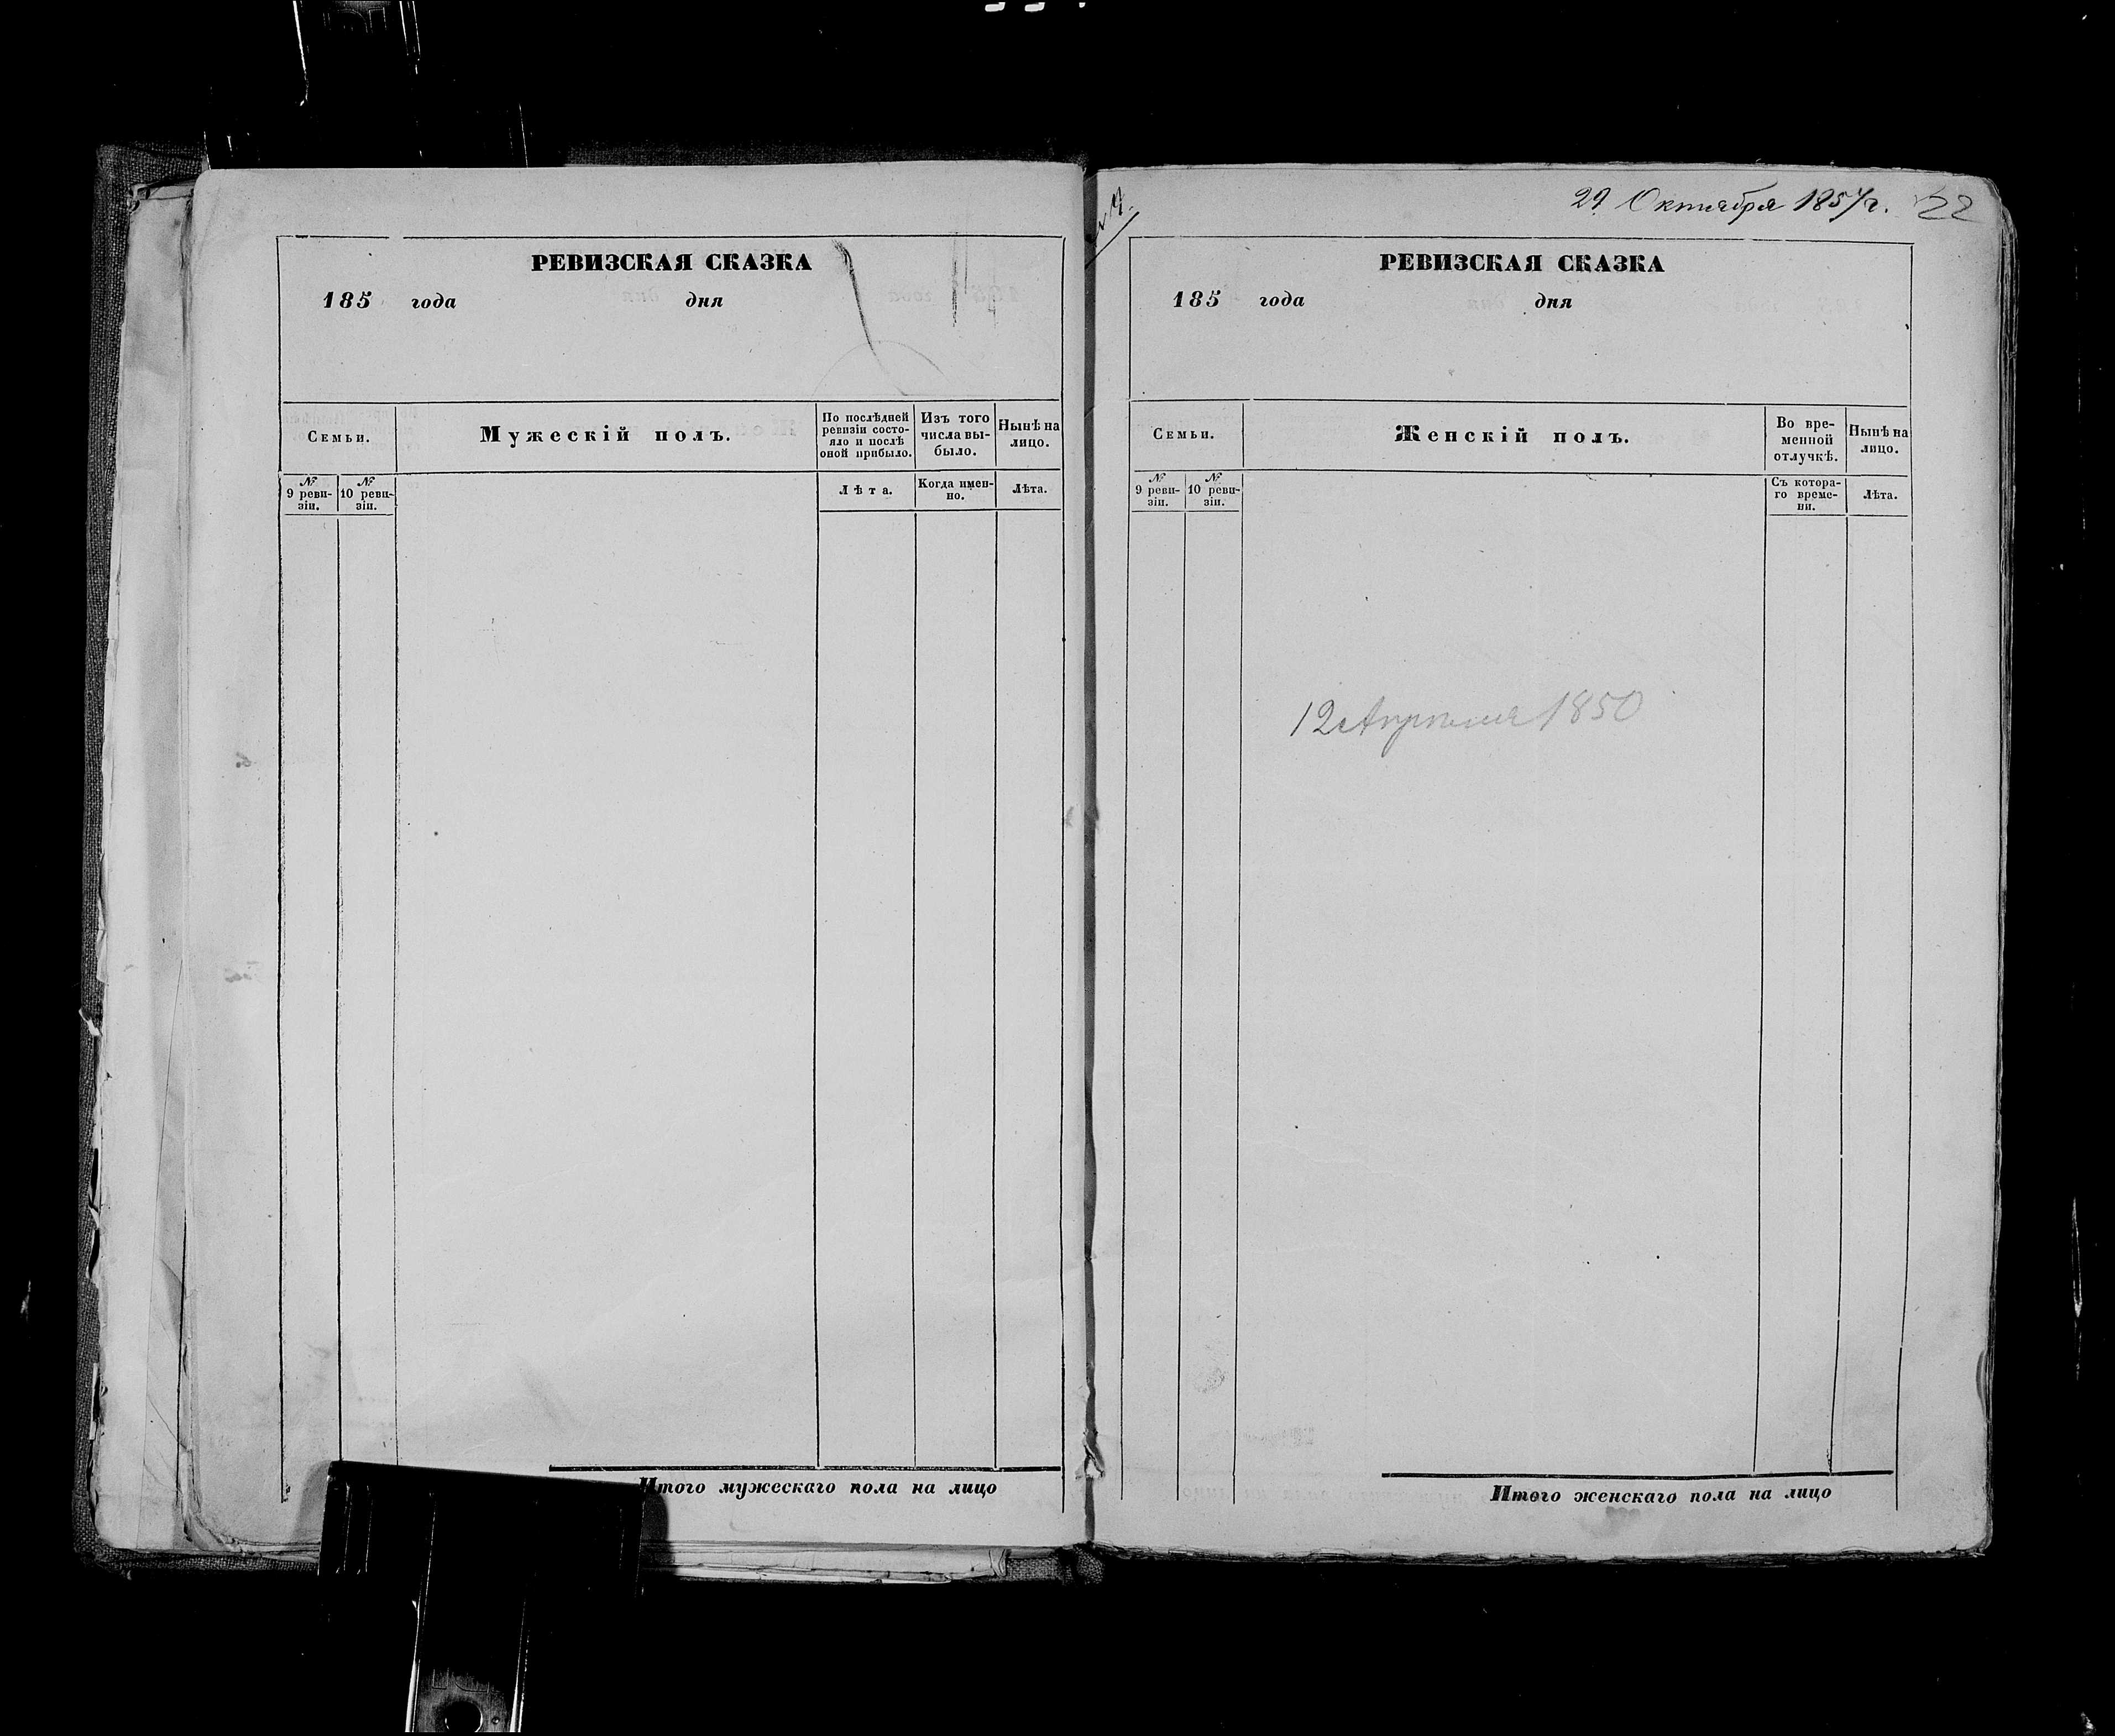 РЕВИЗСКАЯ СКАЗКА
185 года дня
Семьи.
Мужескій полъ.
По послѣдней
ревизіи состо-
яло и послѣ
оной прибыло.
Изъ того
числа вы-
было.
Нынѣ на
лицо.
№
9 реви-
зіи.
№
10 реви-
зіи.
Лѣта.
Когда имен-
но.
Лѣта.
Итого мужескаго пола на лицо
29 Октября 1857 г.
22
РЕВИЗСКАЯ СКАЗКА
185 года дня
Семьи.
Женскій полъ.
Во вре-
менной
отлучкѣ.
Нынѣ на
лицо.
№
9 реви-
зіи.
№
10 реви-
зіи.
Съ котора-
го време-
ни.
Лѣта.
12 Апреля 1850
Итого женскаго пола на лицо